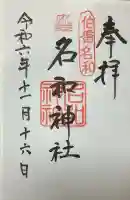 奉拝
伯耆名和
名和神社
令和六年十一月十六日